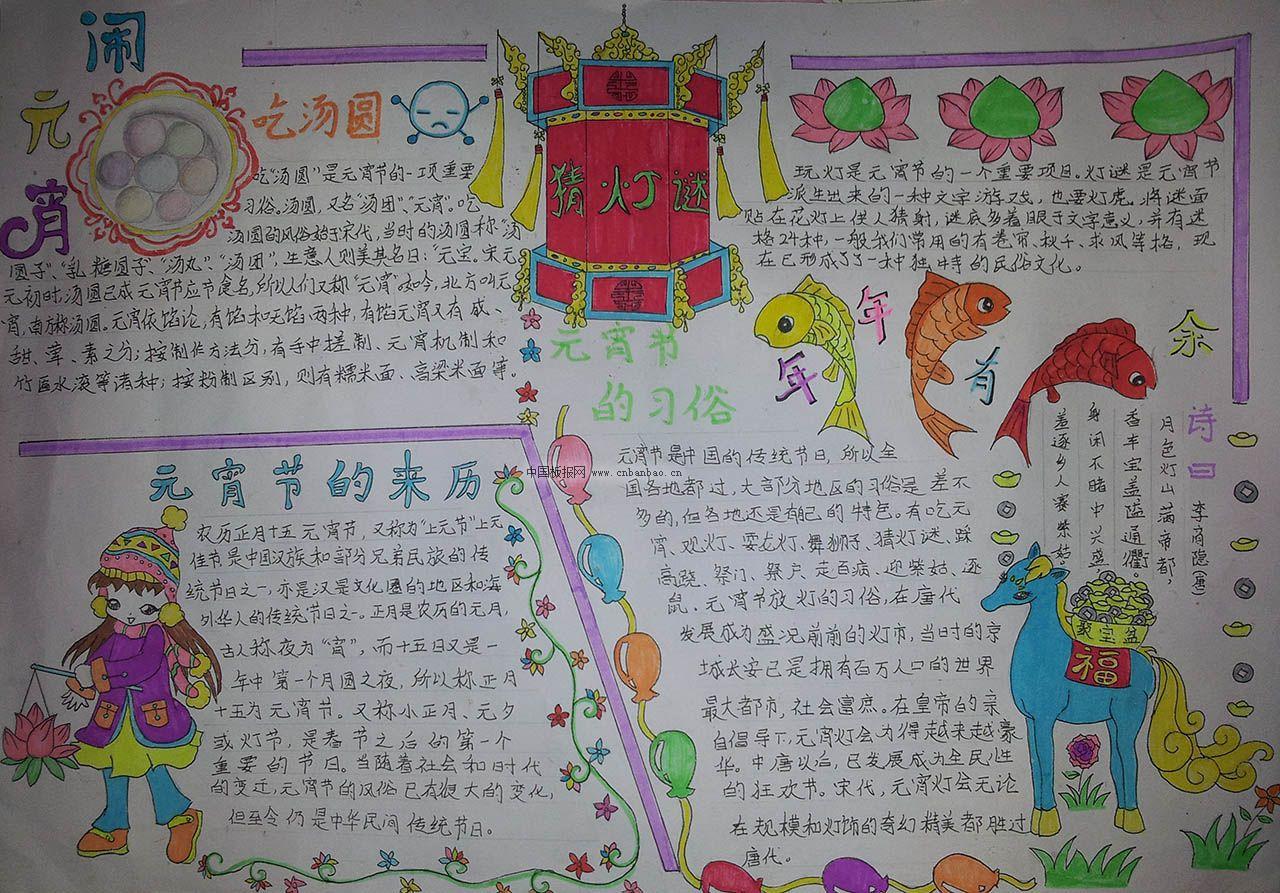 闹
元
宵
吃汤圆
吃"汤圆"是元宵节的一项重要
习俗。汤圆,又名"汤团"、"元宵"。吃
汤圆的风俗始于宋代,当时的汤圆称"汤
圆子"、"乳糖圆子"、"汤丸"、"汤团",生意人则美其名曰:"元宝。宋元
元初时,汤圆已成元宵节应节食名,所以人们又称"元宵"。如今,北方叫元
宵,南方称汤圆。元宵依馅论,有馅和无馅两种,有馅元宵又有咸、
甜、荤、素之分;按制作方法分,有手中搓制、元宵机制和
竹匾水滚等诸种;按粉制区别,则有糯米面、高粱米面等。
猜灯谜
玩灯是元宵节的一个重要项目。灯谜是元宵节
派生出来的一种文字游戏,也要灯虎。将谜面
贴在花灯上供人猜射,谜底多着眼于文字意义,并有谜
格24种,一般我们常用的有卷帘、秋千、求凤等格,现
在已形成了了一种独特的民俗文化。
年
年
有
余
元宵节
的习俗
元宵节是中国的传统节日,所以全
国各地都过,大部分地区的习俗是差不
多的,但各地还是有自己的特色。有吃元
宵、观灯、耍龙灯、舞狮子、猜灯谜、踩
高跷、祭门、祭户、走百病、迎紫姑、逐
鼠、元宵节放灯的习俗,在唐代
发展成为盛况前前的灯市,当日时的京
城长安已是拥有百万人口的世界
最大都市,社会富庶。在皇帝的亲
自倡导下,元宵灯会为得越来越豪
华。中唐以后,已发展成为全民性
的狂欢节。宋代,元宵灯会无论
在规模和灯饰的奇幻精美都胜过
唐代。
诗曰
李商隐(唐)
月色灯山满帝都,
香车宝盖隘通衢。
身闲不睹中兴盛,
羞逐乡人赛紫姑。
聚宝盆
福
元宵节的来历
农历正月十五元宵节,又称为"上元节"上元
佳节是中国汉族和部分兄弟民族的传
统节日之一,亦是汉是文化圈的地区和海
外华人的传统节日之一。正月是农历的元月,
古人称夜为"宵",而十五日又是一
年中第一个月圆之夜,所以称正月
十五为元宵节。又称小正月、元夕
或灯节,是春节之后的第一个
重要的节日。当随着社会和日时代
的变迁,元宵节的风俗已有很大的变化,
但至今仍是中华民间传统节日。
中国板报网
www.cnbanbao.cn